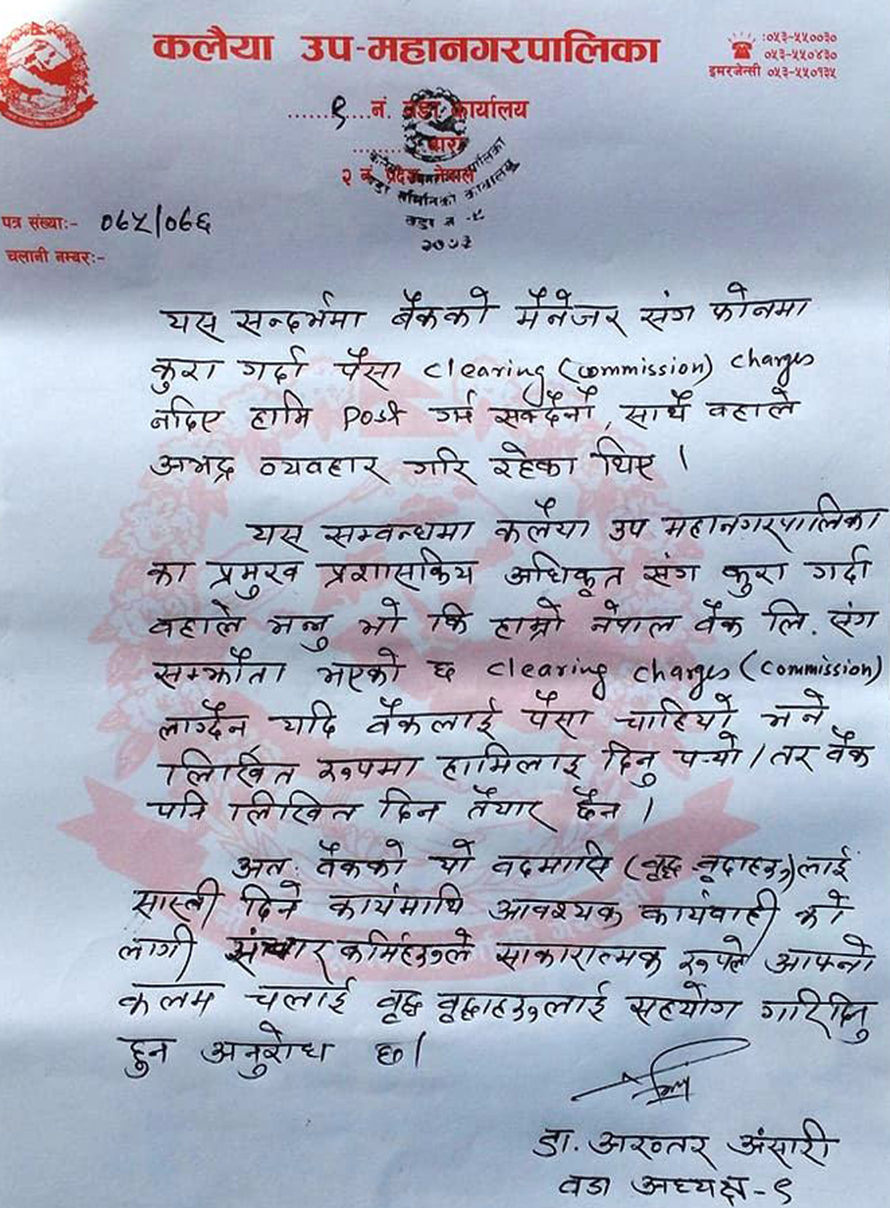 कलैया उप-महानगरपालिका
:०५३-५५००३०
०५३-५५०४३०
इमरजेन्सी ०५३-५५०१३५
.......९...नं. वडा कार्यालय
बारा
२ नं. प्रदेश, नेपाल
वडा नं -९
२०७३
पत्र संख्याः- ०६५/०६६
चलानी नम्बरः-
यस सन्दर्भमा बैंकको मैनेजर संग फोनमा
कुरा गर्दा पैसा clearing (commission) charges
नदिए हामि post गर्न सक्दैनौं, साथै वहाले
अभद्र व्यवहार गरि रहेका थिए ।
यस सम्वन्धमा कलैया उप महानगरपालिका
का प्रमुख प्रशासकिय अधिकृत संग कुरा गर्दा
वहाले भन्नु भो कि हाम्रो नेपाल वैंक लि. संग
सम्झौता भएको छ clearing charges (commission)
लाग्दैन यदि वैंकलाई पैसा चाहियो भने
लिखित रुपमा हामिलाइ दिनु पऱ्यो । तर वैंक
पनि लिखित दिन तैयार छैन ।
अतः वैंकको यो वदमासि (वृद्ध वृद्धाहरु)लाई
सास्ती दिने कार्यमाथि आवश्यक कार्यवाही को
लागी संचार कर्मिहरुले साकारात्मक रुपले आफ्नो
कलम चलाई वृद्ध वृद्धाहरुलाई सहयोग गरिदिनु
हुन अनुरोध छ।
डा. अख्तर अंसारी
वडा अध्यक्ष-९